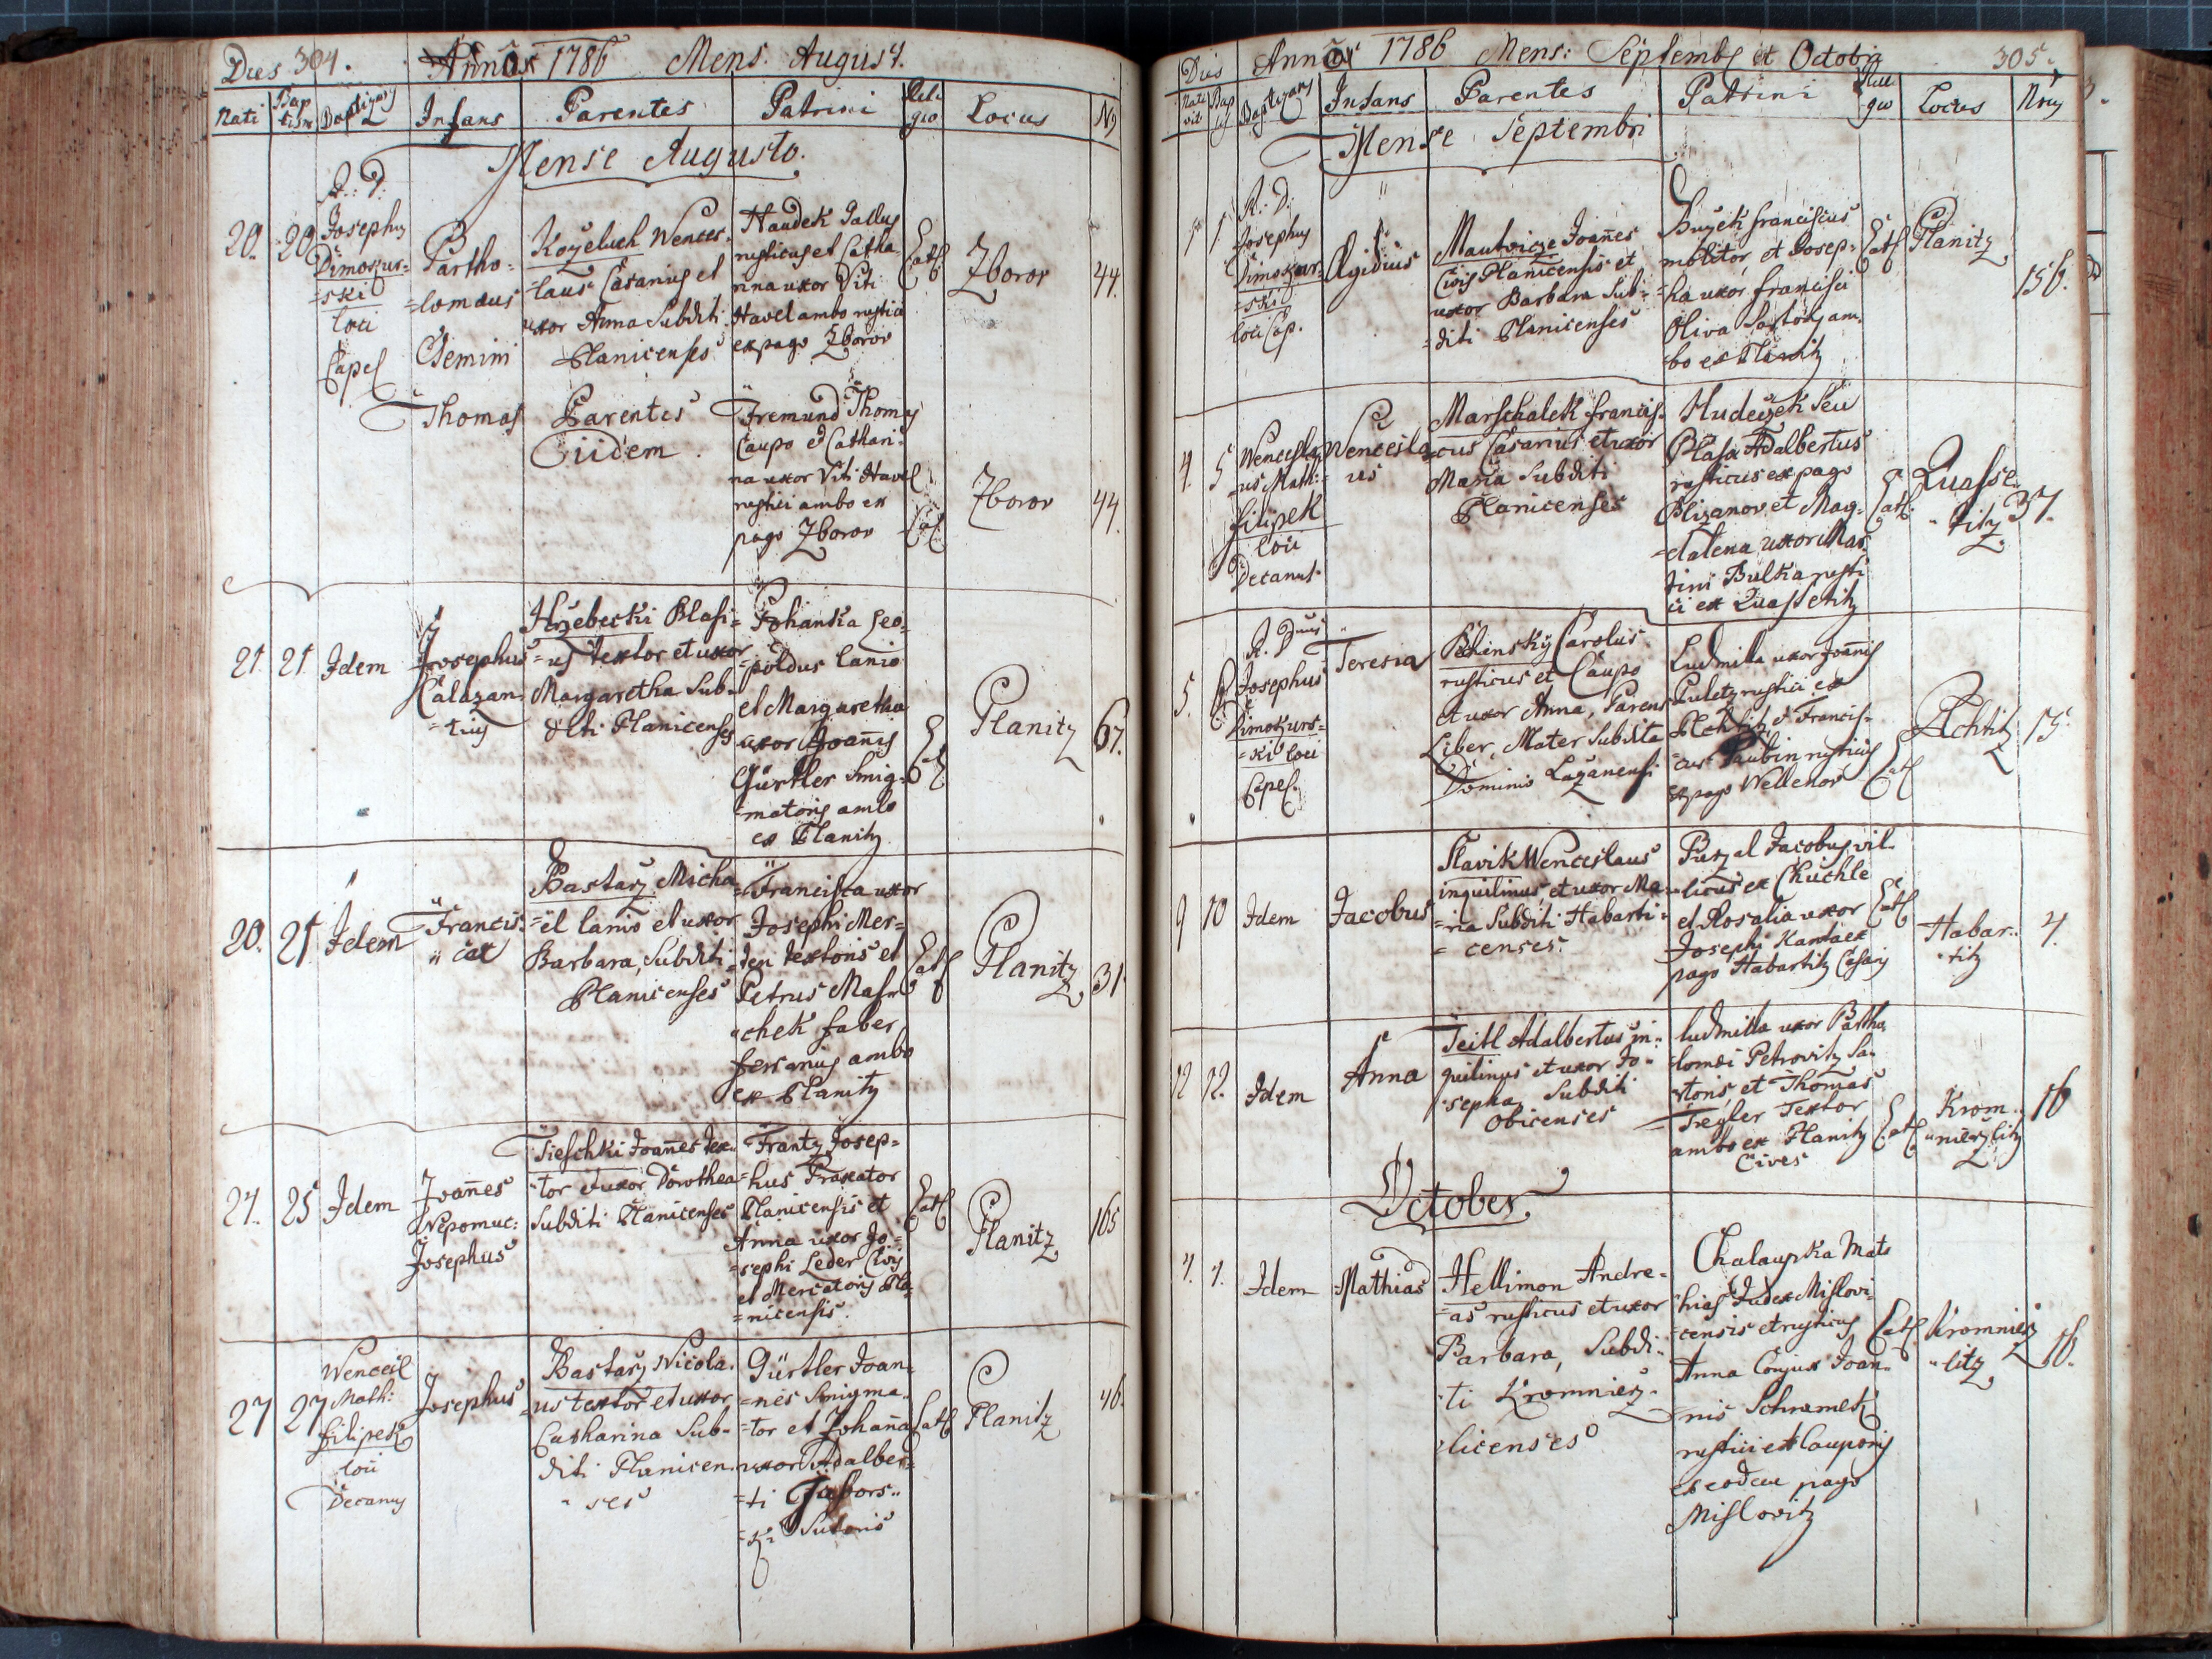 Dies 304. Annus 1786 Mens. August.
Nati Baptism Baptizans Infans Parentes Patrini Religio Locus Nrus
Mense Augusto.
20. 20 R. D.
Josephus
Dimokur=
=ski
loci
Capel
Partho=
=lomaeus
Gemini
Koželuch Wences
=laus Casarius et
uxor Anna Subditi
Planicenses
Haudek Gallus
rusticus et Catha
rina uxor Viti
Havel ambo rustici
ex pago Zborov
Cath
Zborov
44.
Thomas
Parentes
iidem.
Fremund Thomas
Caupo et Cathari=
na uxor Viti Havel
rustici ambo ex
pago Zborov
Cat
Zborov
44.
21. 21 Idem
Josephus
Calazan=
=tius
Hrzebecki Blasi=
=us textor et uxor
Margaretha Sub=
diti Planicenses
Pohanka Leo=
=poldus lanio
et Margaretha
uxor Joannis
Gürtler Smig=
=matoris ambo
ex Planitz
Planitz
67.
20. 21 Idem
Francis=
"ca
Bastarz Micha
=el lanio et uxor
Barbara, Subditi
Planicenses
Francisca uxor
Josephi Mer=
textoris et
Petrus Mas
"chek faber
ferrarius ambo
ex Planitz
Cath
Planitz
31.
24. 25 Idem
Joannes
Nepomuc:
Josephus
Tieschki Joannes tex=
"tor et uxor Dorothea
Subditi Planicenses
Frantz Josep=
=hus Braxator
Planicensis et
Anna uxor Jo=
=sephi Leder Civis
et Mercatoris Pla=
=nicensis.
Cath
Planitz
165
27 27
Wencesl
Math:
Filipek
loci
Decanus
Josephus
Bastarz Nicola
=us textor et uxor
Catharina Sub=
diti Planicen
"ses
Gürtler Joan=
=nes Smigma=
=tor et Johanna
uxor Adalber=
=ti
Sutoris
Cath
Planitz
46.
Dies Annus 1786 Mens: Septemb et Octobri 305.
Nati Bap Baptizans Infans Parentes Patrini Religio Locus Nrus
Mense Septembri
1 1 R. D.
Josephus
Dimokur=
=ski
loci Cap.
Aegidius
Mautvicze Joannes
Civis Planicensis et
uxor Barbara Sub=
=diti Planicenses
Buzek Franciscus
molitor, et Josep=
=ha uxor Francisci
Oliva Sartoris am=
bo ex Planitz
Cath
Planitz
156.
4. 5
Wencesla
=us Math:
Filipek
loci
Decanus
Wencesla
us
Marschalek Francis=
=cus Casarius et uxor
Maria Subditi
Planicenses
Hudeczek Seu
Blasa Adalbertus
rusticus ex pago
Blizanov et Mag=
=dalena uxor Mar
tini Bulka rusti
ci ex Quassetitz
Cath
Quasse
"titz
37.
5. 6
R. Dnus
Josephus
Dimokurs=
=ki loci
Capel.
Teresia
Belinsky Carolus
rusticus et Caupo
et uxor Anna, Parens
Liber, Mater Subdita
Dominio Lazanensi
Ludmilla uxor Joannis
Puletz rustici ex
& Francis=
=cus Paubin rusticus
ex pago Wellenov
Cath
Pchtitz
15
9 10 Idem
Jacobus
Slavik Wenceslaus
inquilinus, et uxor Ma=
=ria Subditi Habarti=
=censes.
Puczal Jacobus vil
=licus ex Chuchle
et Rosalia uxor
Josephi Kanta ex
pago Habartitz Casarii
Cath
Habar=
"titz
4.
12 12. Idem
Anna
Teitl Adalbertus in=
quilinus et uxor Jo=
"sepha Subditi
Obicenses
Ludmilla uxor Bartho
lomaei Petrovitz Sa=
rtoris, et Thomas
Tregler Textor
ambo ex Planitz
Cives
Cath
Krom=
"nierzlitz
16
October.
4. 4. Idem
Mathias
Hellimon Andre=
=as rusticus et uxor
Barbara, Subdi=
"ti Kromnierz=
"licenses
Chalaupka Mat
hias Judex Mislovi=
censis et rusticus
Anna Conjux Joan=
nis Schramek
rustici et Cauponis
ex eodem pago
Mislovitz
Cath
Kromnierz
"litz
16.